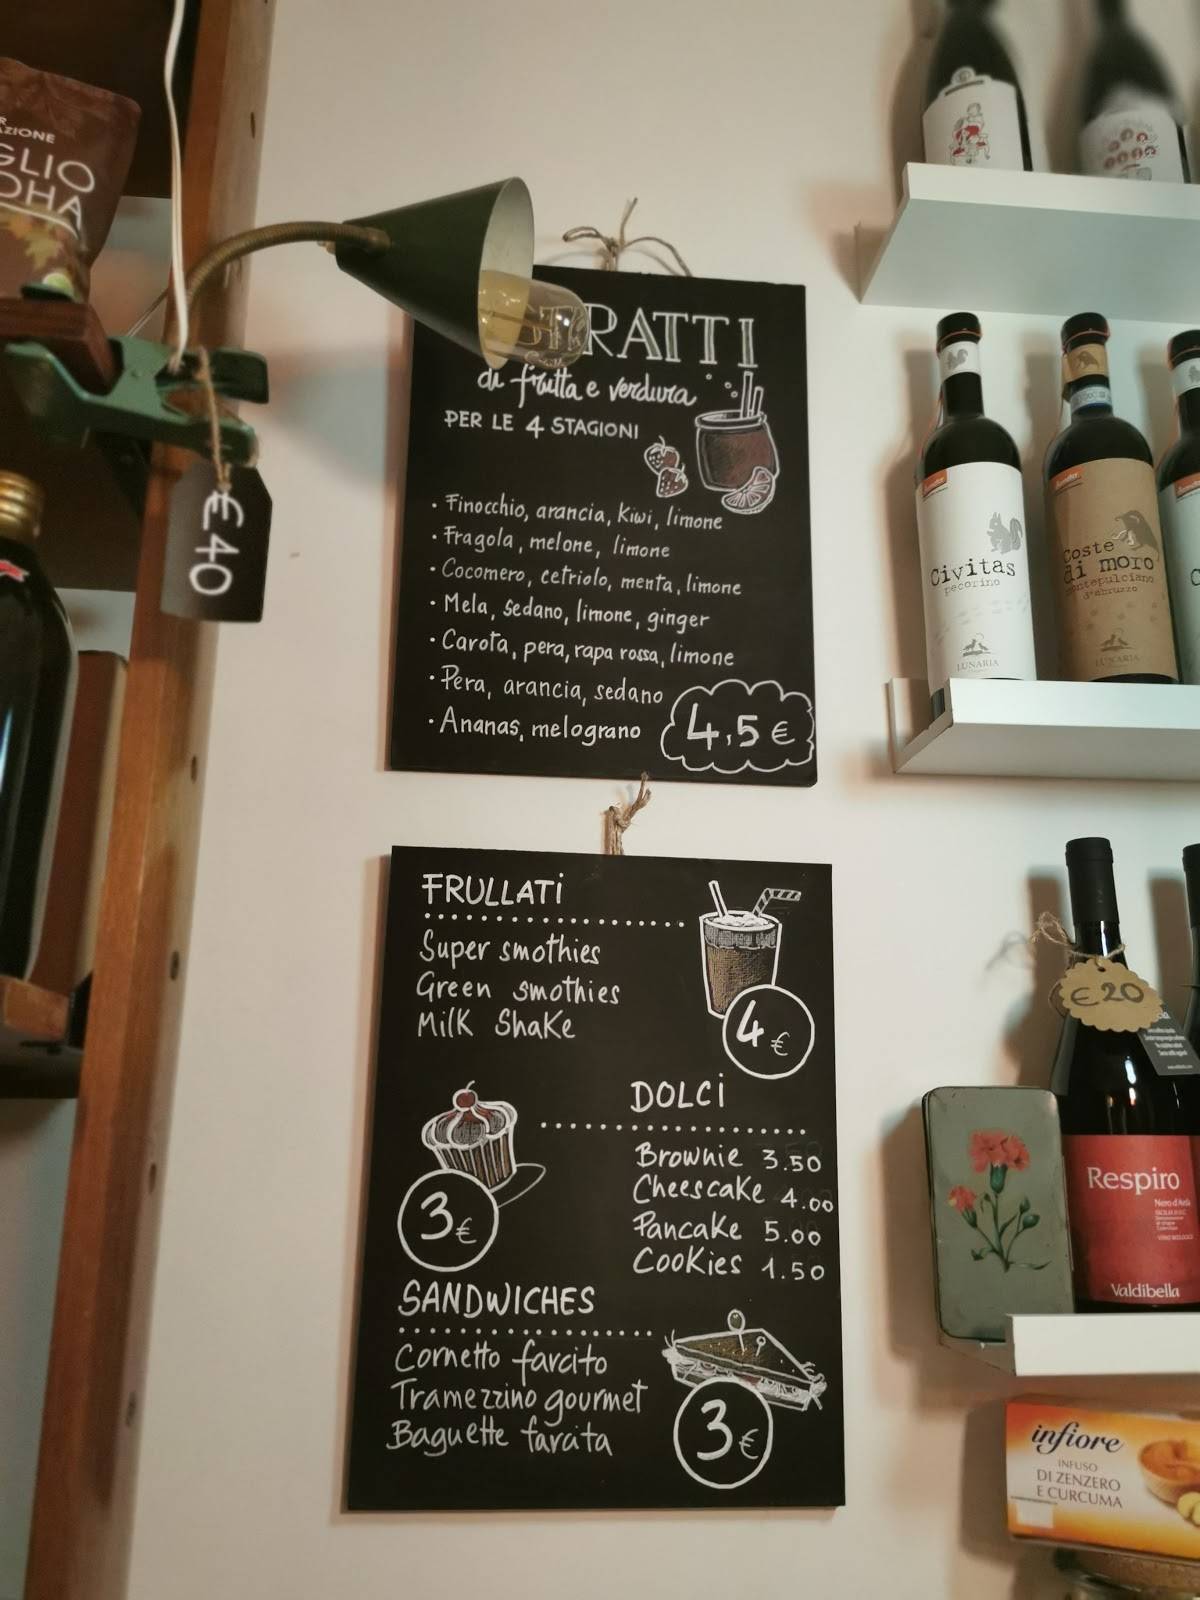 AZIONE
GLIO
OHA
€40
RATTI
di frutta e verdura
PER LE 4 STAGIONI
• Finocchio, arancia, Kiwi, limone
• Fragola, melone, limone
• Cocomero, cetriolo, menta, limone
• Mela, sedano, limone, ginger
• Carota, pera, rapa rossa, limone
• Pera, arancia, sedano
• Ananas, melograno
4,5 €
FRULLATI
Super smothies
Green smothies
Milk Shake
4 €
DOLCI
Brownie 3.50
Cheescake 4.00
Pancake 5.00
Cookies 1.50
3 €
SANDWICHES
Cornetto farcito
Tramezzino gourmet
Baguette farcita
3 €
Civitas
pecorino
LUNARIA
Coste
di moro
montepulciano
d'abruzzo
LUNARIA
€20
Respiro
Nero d'Avola
Valdibella
infiore
INFUSO
DI ZENZERO
E CURCUMA